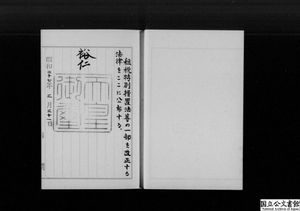 租税特別措置法等の一部を改正する
法律をここに公布する。
裕仁
天皇
御璽
昭和三十七年三月三十一日
国立公文書館
National Archives of Japan